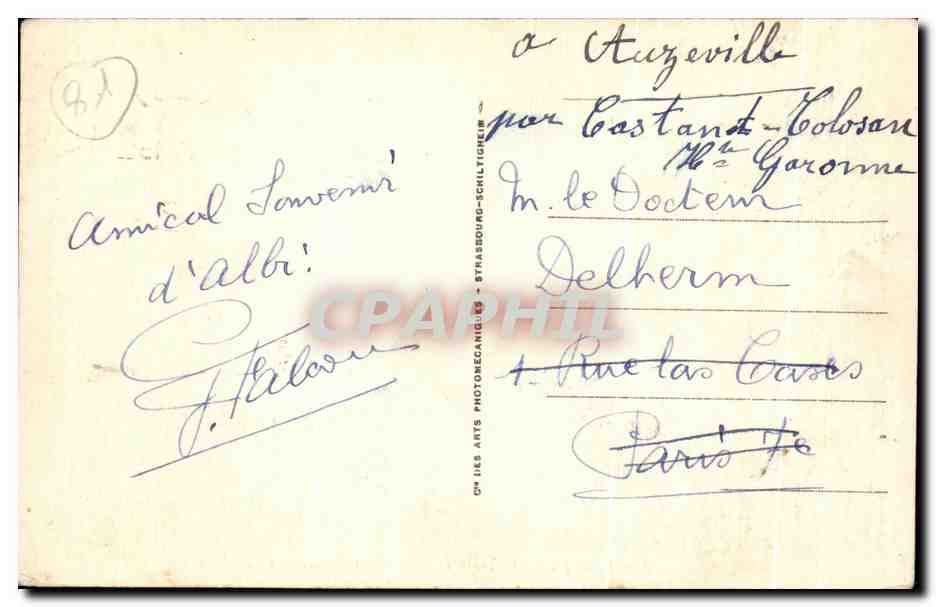 81
Amical Souvenir
d'Albi.
à Auzeville
par Castanet-Tolosan
Hte Garonne
M. le Docteur
Delherm
1. Rue las Cases
Paris 7e
Cie DES ARTS PHOTOMECANIQUES - STRASBOURG-SCHILTIGHEIM
CPAPHIL